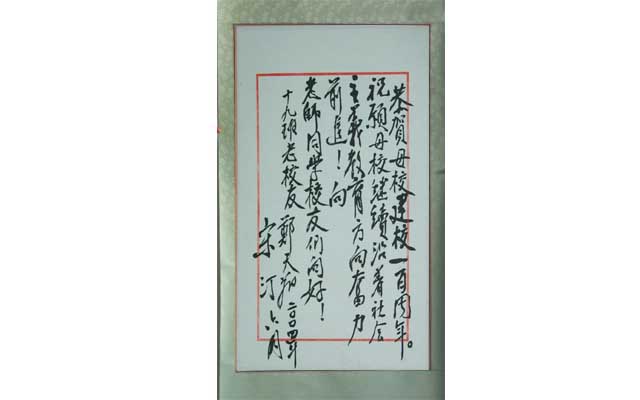 恭賀母校建校一百周年。
祝願母校继續沿着社会
主義教育方向奋力
前進！向
老師同学校友们问好！
十九班老校友 鄭天翔 二〇〇四年
宋汀 六月